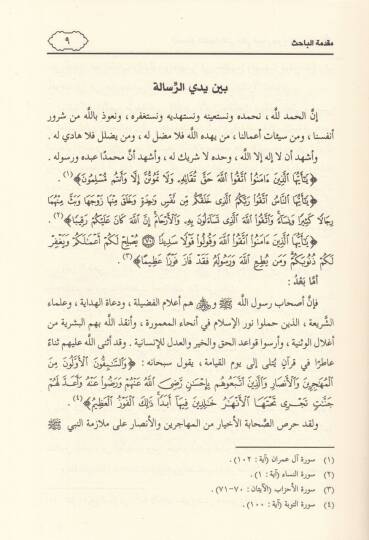 مقدمة الباحث
٩
بين يدي الرِّسالة
إنَّ الحمد للَّه ، نحمده ونستعينه ونستهديه ونستغفره ، ونعوذ باللَّه من شرور
أنفسنا ، ومن سيئات أعمالنا ، من يهده اللَّه فلا مضل له ، ومن يضلل فلا هادي له .
وأشهد أن لا إله إلا اللَّه ، وحده لا شريك له ، وأشهد أنَّ محمدًا عبده ورسوله .
﴿يَٰٓأَيُّهَا ٱلَّذِينَ ءَامَنُوا۟ ٱتَّقُوا۟ ٱللَّهَ حَقَّ تُقَاتِهِۦ وَلَا تَمُوتُنَّ إِلَّا وَأَنتُم مُّسْلِمُونَ﴾(١) .
﴿يَٰٓأَيُّهَا ٱلنَّاسُ ٱتَّقُوا۟ رَبَّكُمُ ٱلَّذِى خَلَقَكُم مِّن نَّفْسٍ وَٰحِدَةٍ وَخَلَقَ مِنْهَا زَوْجَهَا وَبَثَّ مِنْهُمَا
رِجَالًا كَثِيرًا وَنِسَآءً وَٱتَّقُوا۟ ٱللَّهَ ٱلَّذِى تَسَآءَلُونَ بِهِۦ وَٱلْأَرْحَامَ إِنَّ ٱللَّهَ كَانَ عَلَيْكُمْ رَقِيبًا﴾(٢) .
﴿يَٰٓأَيُّهَا ٱلَّذِينَ ءَامَنُوا۟ ٱتَّقُوا۟ ٱللَّهَ وَقُولُوا۟ قَوْلًا سَدِيدًا ۝٧٠ يُصْلِحْ لَكُمْ أَعْمَٰلَكُمْ وَيَغْفِرْ
لَكُمْ ذُنُوبَكُمْ وَمَن يُطِعِ ٱللَّهَ وَرَسُولَهُۥ فَقَدْ فَازَ فَوْزًا عَظِيمًا﴾(٣) .
أمَّا بَعْدُ :
فإنَّ أصحاب رسول اللَّه ﷺ و﵃ هم أعلام الفضيلة ، ودعاة الهداية ، وعلماء
الشَّريعة ، الذين حملوا نور الإسلام في أنحاء المعمورة ، وأنقذ اللَّه بهم البشرية من
أغلال الوثنية ، وأرسوا قواعد الحق والخير والعدل للإنسانية . وقد أثنى اللَّه عليهم ثناءً
عاطرًا في قرآنٍ يُتلى إلى يوم القيامة ، يقول سبحانه : ﴿وَٱلسَّٰبِقُونَ ٱلْأَوَّلُونَ مِنَ
ٱلْمُهَٰجِرِينَ وَٱلْأَنصَارِ وَٱلَّذِينَ ٱتَّبَعُوهُم بِإِحْسَٰنٍ رَّضِىَ ٱللَّهُ عَنْهُمْ وَرَضُوا۟ عَنْهُ وَأَعَدَّ لَهُمْ
جَنَّٰتٍ تَجْرِى تَحْتَهَا ٱلْأَنْهَٰرُ خَٰلِدِينَ فِيهَآ أَبَدًا ذَٰلِكَ ٱلْفَوْزُ ٱلْعَظِيمُ﴾(٤) .
ولقد حرص الصَّحابة الأخيار من المهاجرين والأنصار على ملازمة النبي ﷺ
(١) سورة آل عمران (آية : ١٠٢) .
(٢) سورة النساء (آية : ١) .
(٣) سورة الأحزاب (الآيتان : ٧٠-٧١) .
(٤) سورة التوبة (آية : ١٠٠) .